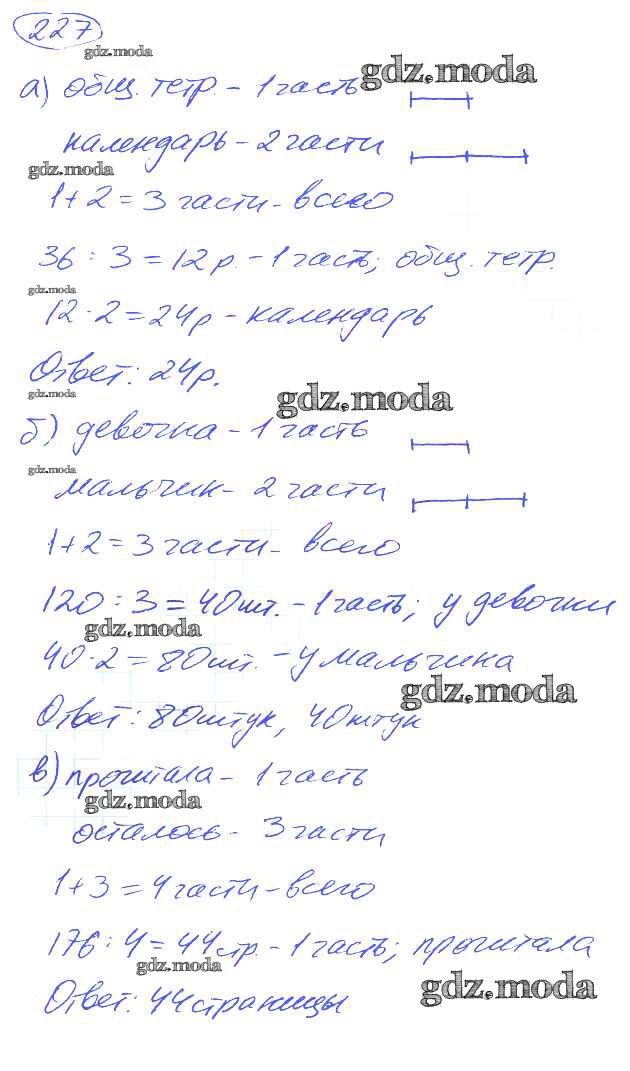 227
gdz.moda
а) общ. тетр. - 1 часть
gdz.moda
календарь - 2 части
gdz.moda
1+2=3 части - всего
36 : 3 = 12 р. - 1 часть; общ. тетр.
gdz.moda
12 · 2 = 24 р - календарь
Ответ: 24 р.
gdz.moda
gdz.moda
б) девочка - 1 часть
gdz.moda
мальчик - 2 части
1+2=3 части - всего
120 : 3 = 40 шт. - 1 часть; у девочки
gdz.moda
40 · 2 = 80 шт. - у мальчика
gdz.moda
Ответ: 80 штук, 40 штук
в) прочитала - 1 часть
gdz.moda
осталось - 3 части
1+3=4 части - всего
176 : 4 = 44 стр. - 1 часть; прочитала
gdz.moda
gdz.moda
Ответ: 44 страницы